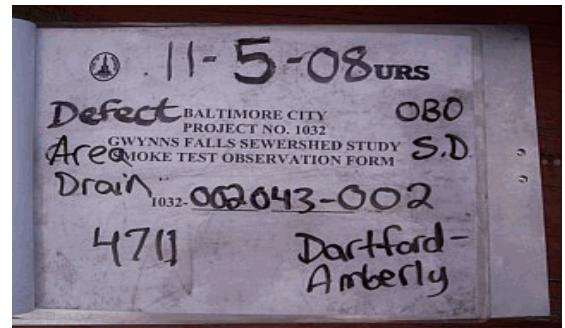 11-5-08 URS
Defect BALTIMORE CITY OBO
PROJECT NO. 1032
Area GWYNNS FALLS SEWERSHED STUDY S.D.
SMOKE TEST OBSERVATION FORM
Drain 1032-002043-002
4711 Dartford-
Amberly